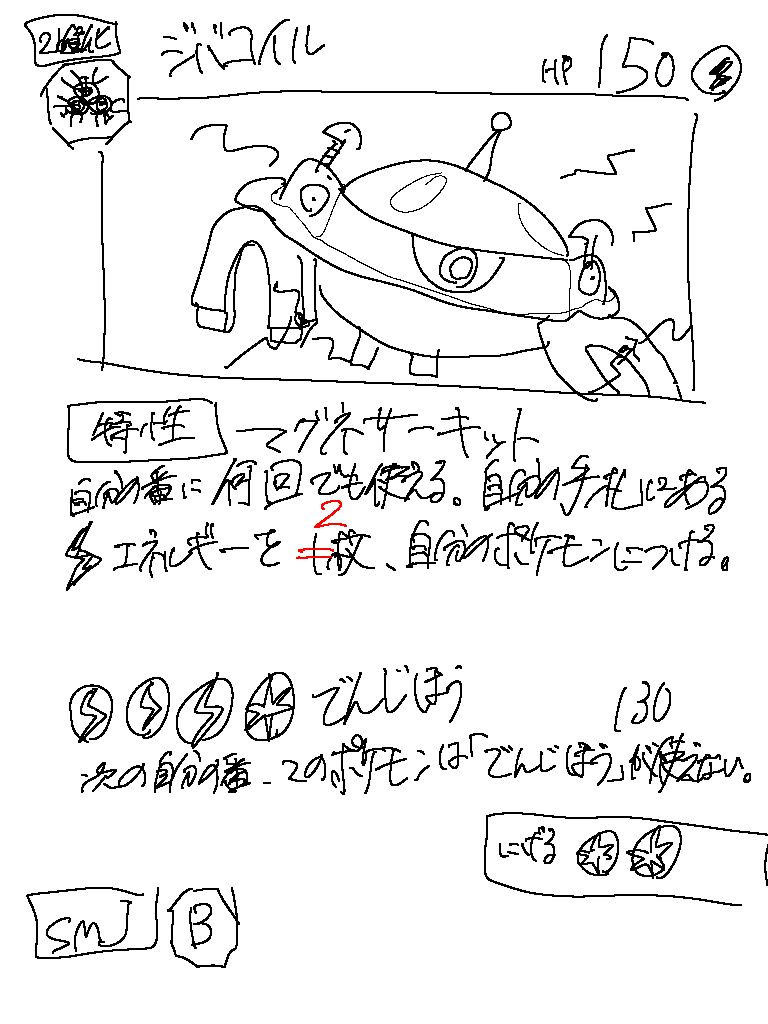 2進化
ジバコイル
HP 150
特性 マグネサーキット
自分の番に何回でも使える。自分の手札にある
エネルギーを2枚、自分のポケモンにつける。
でんじほう 130
次の自分の番、このポケモンは「でんじほう」が使えない。
にげる
SMJ B